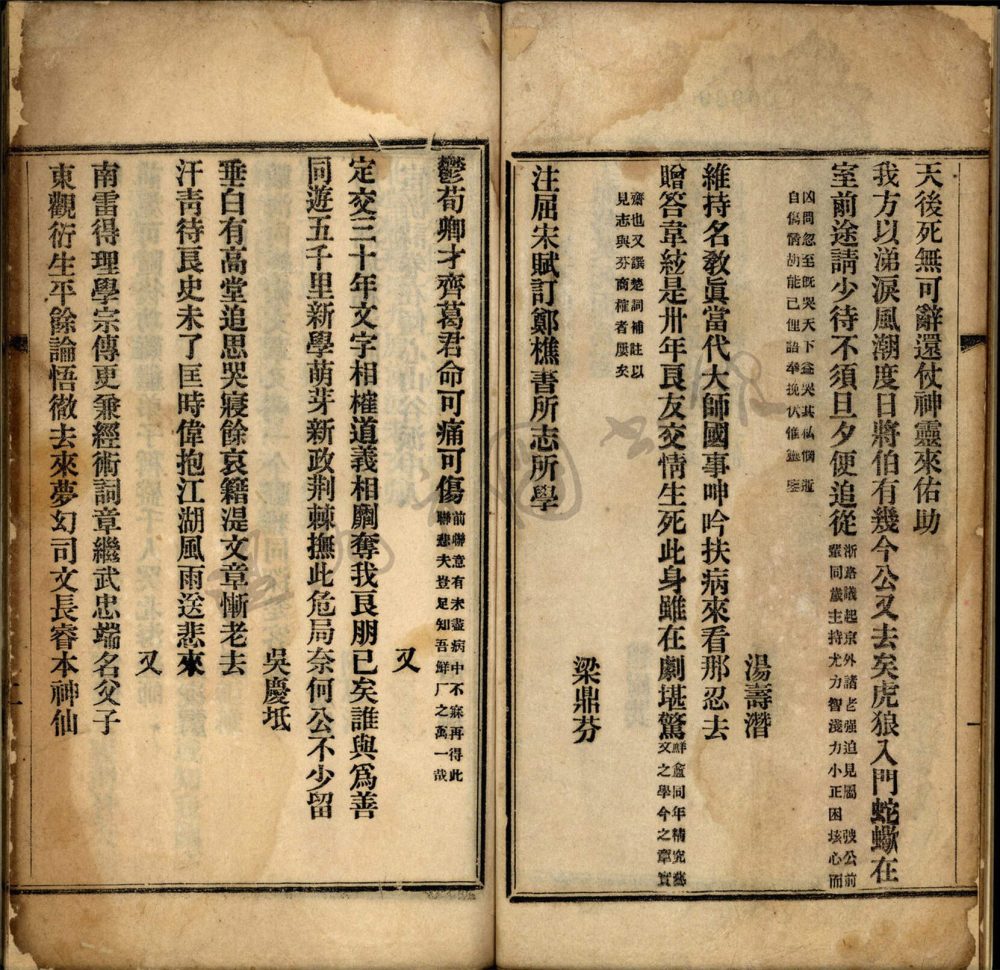 天後死無可辭還仗神靈來佑助
我方以涕淚風潮度日將伯有幾今公又去矣虎狼入門蛇蠍在
室前途請少待不須旦夕便追從浙路議起京外諸老強迫見屬 公前
輩同歲主持尤力智淺力小正困垓心而
凶問忽至旣哭天下益哭其私惆逝
自傷 能已俚語奉挽伏惟鑒
湯壽潛
維持名敎眞當代大師國事呻吟扶病來看那忍去
贈答韋絃是卅年良友交情生死此身雖在劇堪驚鮮盦同年精究藝
文之學今之章實
齋也又譔楚詞補註以
見志與芬商榷者屢矣
梁鼎芬
注屈宋賦訂鄭樵書所志所學
鬱荀卿才齊葛君命可痛可傷前聯意有未盡病中不寐再得此
聯悲夫豈足知吾鮮厂之萬一哉
又
定交三十年文字相榷道義相劘奪我良朋已矣誰與爲善
同遊五千里新學萌芽新政荆棘撫此危局奈何公不少留
吳慶坻
垂白有高堂追思哭寢餘哀籍湜文章慚老去
汗靑待良史未了匡時偉抱江湖風雨送悲來
又
南雷得理學宗傳更兼經術詞章繼武忠端名父子
東觀衍生平餘論悟徹去來夢幻司文長睿本神仙
一
二